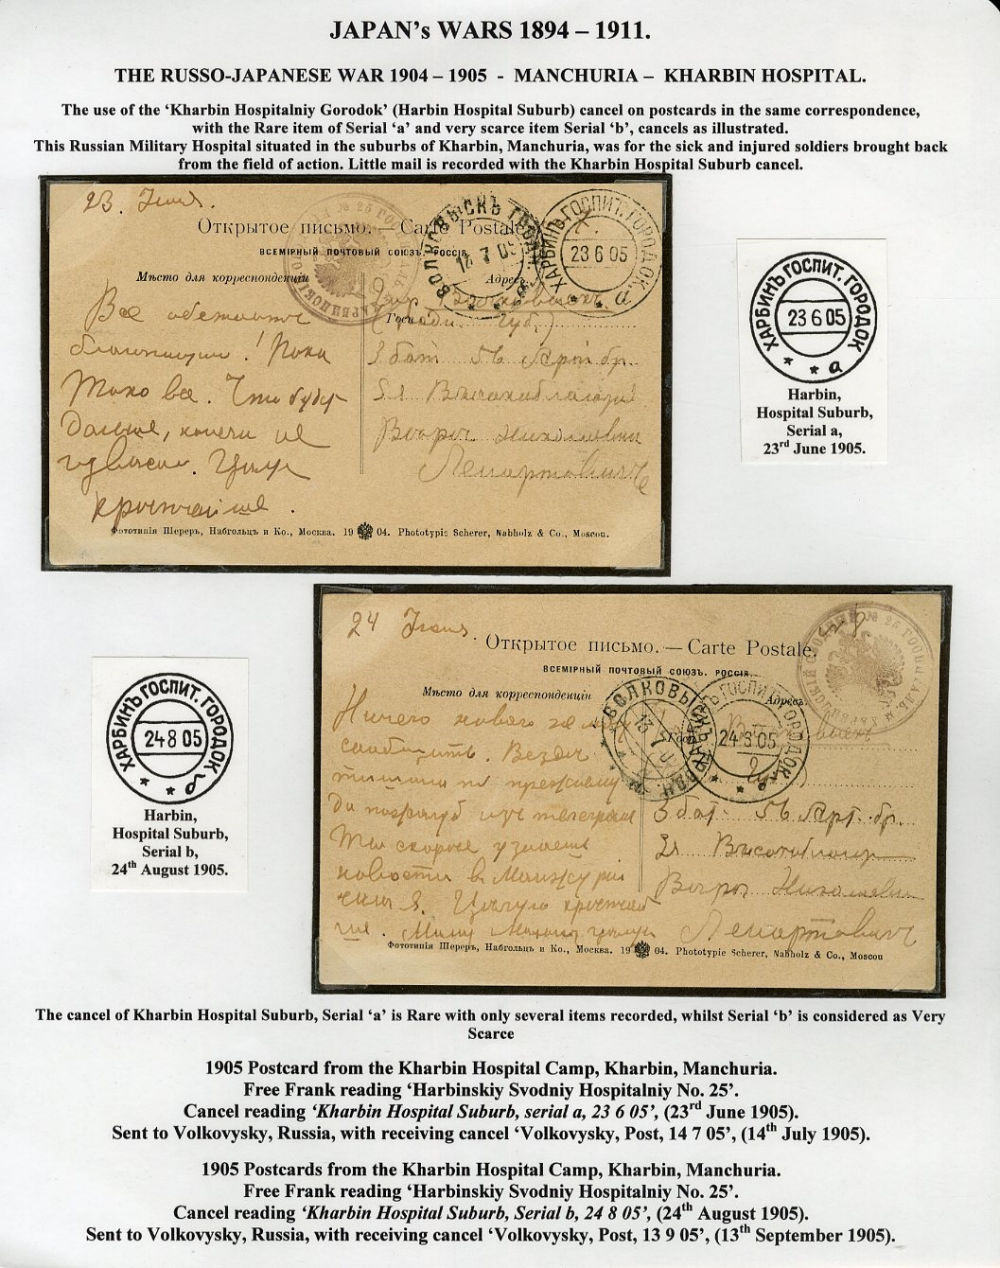 JAPAN's WARS 1894 – 1911.
THE RUSSO-JAPANESE WAR 1904 – 1905 - MANCHURIA – KHARBIN HOSPITAL.
The use of the ‘Kharbin Hospitalniy Gorodok’ (Harbin Hospital Suburb) cancel on postcards in the same correspondence,
with the Rare item of Serial ‘a’ and very scarce item Serial ‘b’, cancels as illustrated.
This Russian Military Hospital situated in the suburbs of Kharbin, Manchuria, was for the sick and injured soldiers brought back
from the field of action. Little mail is recorded with the Kharbin Hospital Suburb cancel.
23.
Открытое письмо. — Carte Postale.
ВСЕМІРНЫЙ ПОЧТОВЫЙ СОЮЗЪ. РОССІЯ.
Мѣсто для корреспонденціи
Адресъ
ВОЛКОВЫСКЪ
14 7 05
ХАРБИНЪ ГОСПИТ. ГОРОДОК.
23 6 05
а
Все
! Пока
Тихо все. Что будет
дальше,
3 бат. 5й Арт. бр.
Николаевич
Фототипія Шереръ, Набгольцъ и Ко., Москва. 19 04. Phototypie Scherer, Nabholz & Co., Moscou.
ХАРБИНЪ ГОСПИТ. ГОРОДОК
23 6 05
а
Harbin,
Hospital Suburb,
Serial a,
23rd June 1905.
24
Открытое письмо. — Carte Postale.
ВСЕМІРНЫЙ ПОЧТОВЫЙ СОЮЗЪ. РОССІЯ.
Мѣсто для корреспонденціи
Адресъ
ВОЛКОВЫСКЪ
ХАРБИНЪ ГОСПИТ. ГОРОДОК
24 8 05
Ничего нового не могу
сообщить. Везде
тишина по прежнему
Ты скорее узнаешь
новости в
3 бат. 5й Арт. бр.
Николаевич
Фототипія Шереръ, Набгольцъ и Ко., Москва. 19 04. Phototypie Scherer, Nabholz & Co., Moscou
ХАРБИНЪ ГОСПИТ. ГОРОДОК
24 8 05
Harbin,
Hospital Suburb,
Serial b,
24th August 1905.
The cancel of Kharbin Hospital Suburb, Serial ‘a’ is Rare with only several items recorded, whilst Serial ‘b’ is considered as Very
Scarce
1905 Postcard from the Kharbin Hospital Camp, Kharbin, Manchuria.
Free Frank reading ‘Harbinskiy Svodniy Hospitalniy No. 25’.
Cancel reading ‘Kharbin Hospital Suburb, serial a, 23 6 05’, (23rd June 1905).
Sent to Volkovysky, Russia, with receiving cancel ‘Volkovysky, Post, 14 7 05’, (14th July 1905).
1905 Postcards from the Kharbin Hospital Camp, Kharbin, Manchuria.
Free Frank reading ‘Harbinskiy Svodniy Hospitalniy No. 25’.
Cancel reading ‘Kharbin Hospital Suburb, Serial b, 24 8 05’, (24th August 1905).
Sent to Volkovysky, Russia, with receiving cancel ‘Volkovysky, Post, 13 9 05’, (13th September 1905).